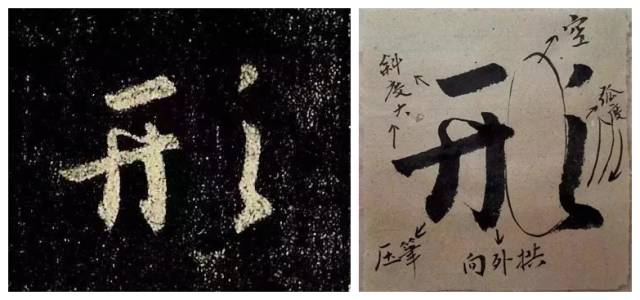 形
形
空
斜度大
弧度
压筆
向外拱